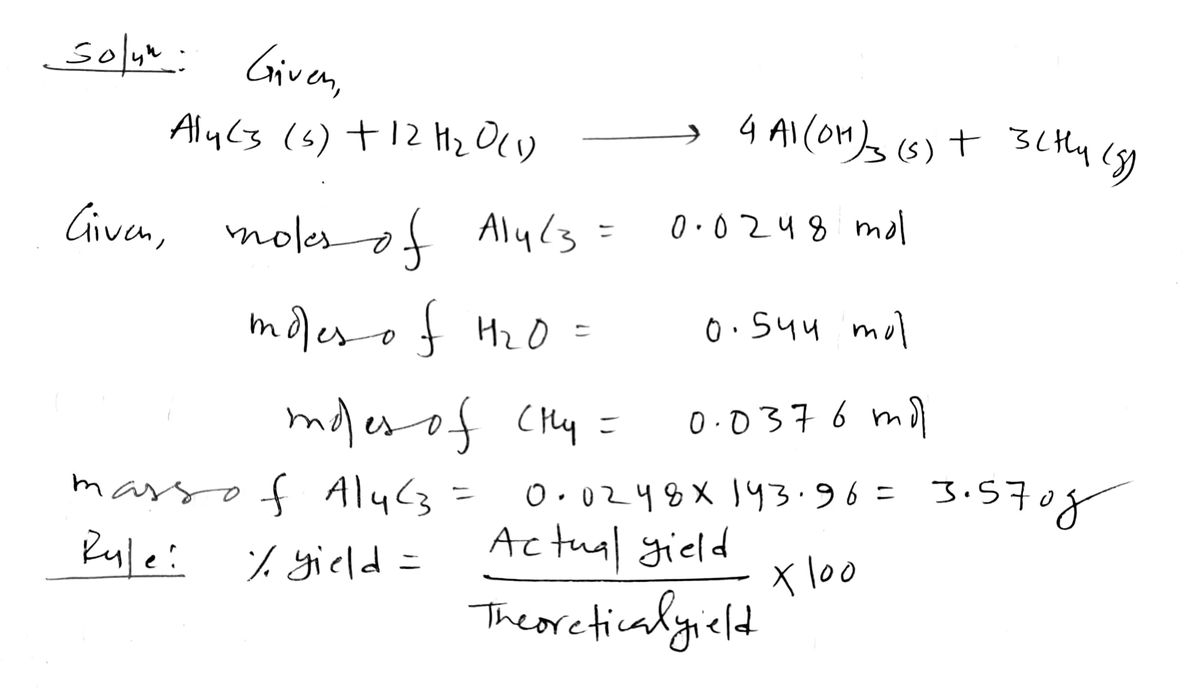 Solun: Given,
Al4C3 (s) + 12 H2O(l) → 4 Al(OH)3 (s) + 3CH4 (g)
Given, moles of Al4C3 = 0.0248 mol
moles of H2O = 0.544 mol
moles of CH4 = 0.0376 mol
mass of Al4C3 = 0.0248 × 143.96 = 3.570g
Rule: % yield = Actual yield / Theoretical yield × 100